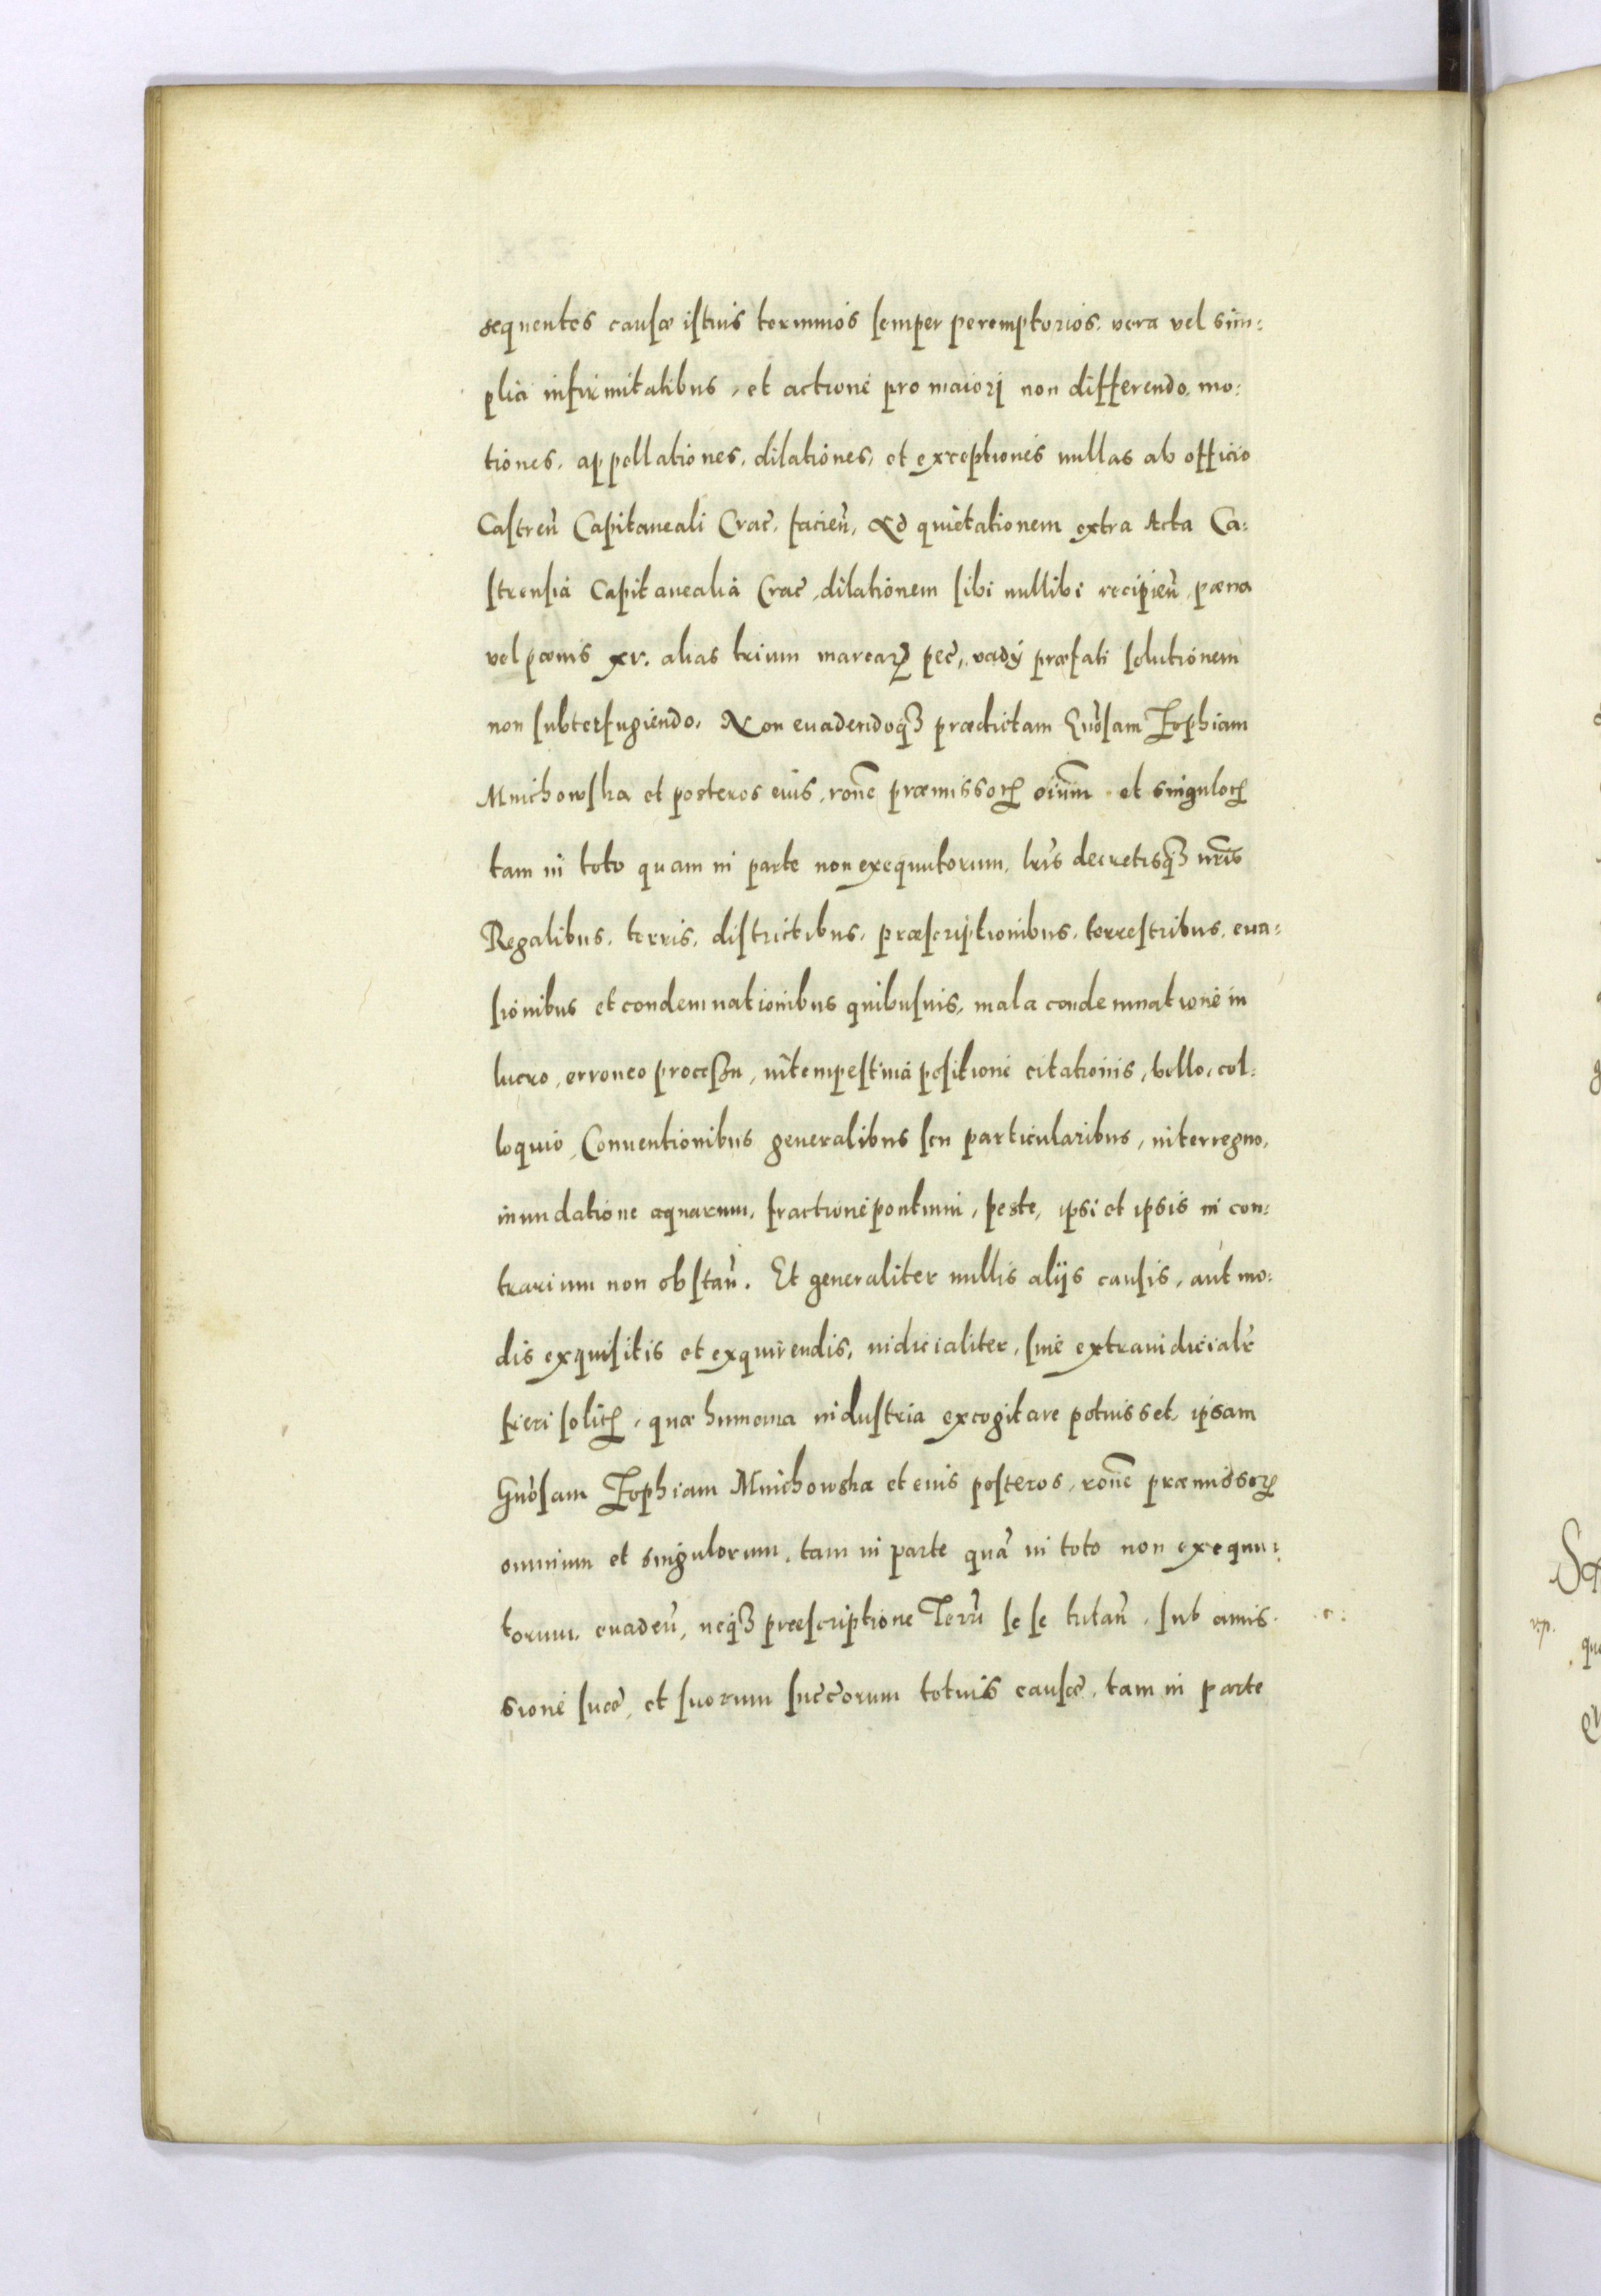 sequentes causæ istius terminos semper peremptorios, vera vel sim:
plici infirmitatibus, et actione pro maiori non differendo, mo:
tiones, appellationes, dilationes, et exceptiones nullas ab officio
Castreñ Capitaneali Crac̃, facieñ, Ad quietationem extra Acta Ca:
strensia Capitanealia Crac̃, dilationem sibi nullibi recipieñ, pæna
vel pœnis xv. alias trium marcarꝝ pec̃, vadÿ præfati solutionem
non subterfugiendo, Non euadendoqꝫ prædictam Gñosam Zophiam
Mnichowska et posteros eius, rõne præmissorꝝ oiũm et singulorꝝ
tam in toto quam in parte non exequutorum, lrĩs decretisqꝫ nrĩs
Regalibus, terris, districtibus, præscriptionibus, terrestribus, eua:
sionibus et condemnationibus quibusuis, mala condemnatione in
lucro, erroneo processu, intempestiua positione citationis, bello, col:
loquio, Conuentionibus generalibus seu particularibus, interregno,
inundatione aquarum, fractione pontium, peste, ipsi et ipsis in con:
trarium non obstañ. Et generaliter nullis alijs causis, aut mo:
dis exquisitis et exquirendis, iudicialiter, siue extraiudicialr̃
fieri solitꝝ, quæ humana industria excogitare potuisset, ipsam
Gñosam Zophiam Mnichowska et eius posteros, rõne præmissorꝝ
omnium et singulorum, tam in parte quã in toto non exequu:
torum, euadeñ, neqꝫ præscriptione Terrũ se se tutañ, sub amis:
sione suæ, et suorum succ̃orum totius causæ, tam in parte